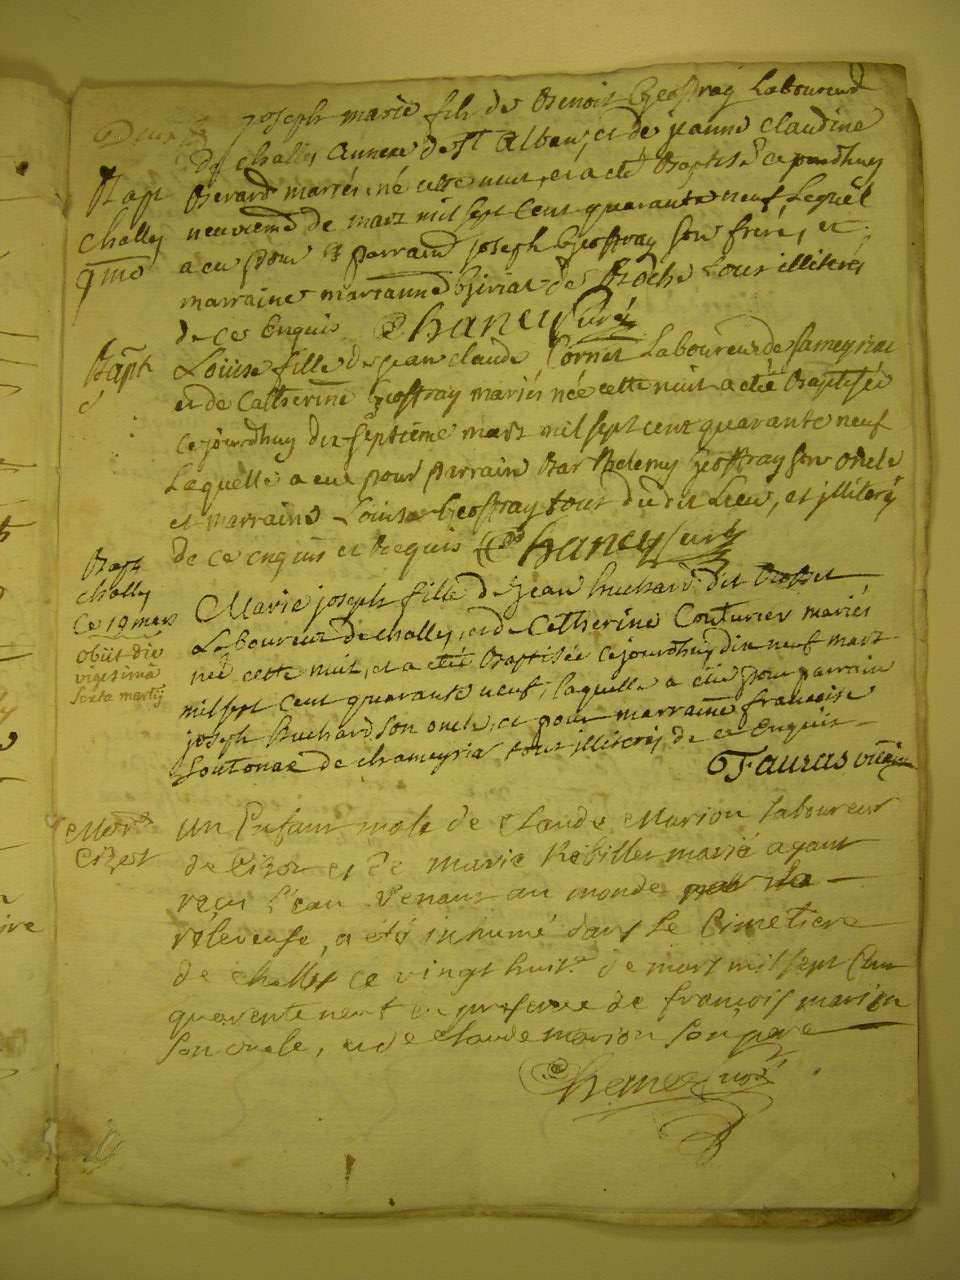 joseph marie fils de Benoit Geoffray Laboureur
de challes annexe de st Alban, et de jeanne claudine
Bapt
Berard mariés, né cette nuit, et a eté Baptisé ce jourdhuy
challes
neuvieme de marz mil sept cent quarante neuf Lequel
a eu pour parrain joseph Geoffray son frere, et
marraine marianne de Boche tous illiteres
de ce Enquis Chaney Curé
Bapt
Louise fille de jean claude Cornet Laboureur de
et de Catherine Geoffray mariés née cette nuit a eté Baptisée
ce jourdhuy dix septieme marz mil sept cent quarante neuf
Laquelle a eu pour parrain Barthelemy Geoffray son oncle
et marraine Louise Geoffray tous dudit Lieu, et illiteres
de ce enquis et Requis Chaney Curé
Bapt
challes
Ce 19 mars
obiit die
vigesima
sexta martij
Marie joseph fille de jean huchard dit
Laboureur de challes, et de Catherine Couturier mariés
née cette nuit, et a eté Baptisée ce jourdhuy dix neuf marz
mil sept cent quarante neuf, laquelle a eu pour parrain
joseph huchard son oncle, et pour marraine francoise
de chameyria tous illiteres de ce Enquis
Fauras
Un Enfant male de Claude Marion laboureur
de et de marie Rebillet marié ayant
reçu l'eau venant au monde par la
releveuse, a eté inhumé dans le Cimetiere
de challes ce vingt huit de mars mil sept Cent
quarente neuf en presence de françois marion
son oncle, et de Claude marion son pere
Chaney Curé